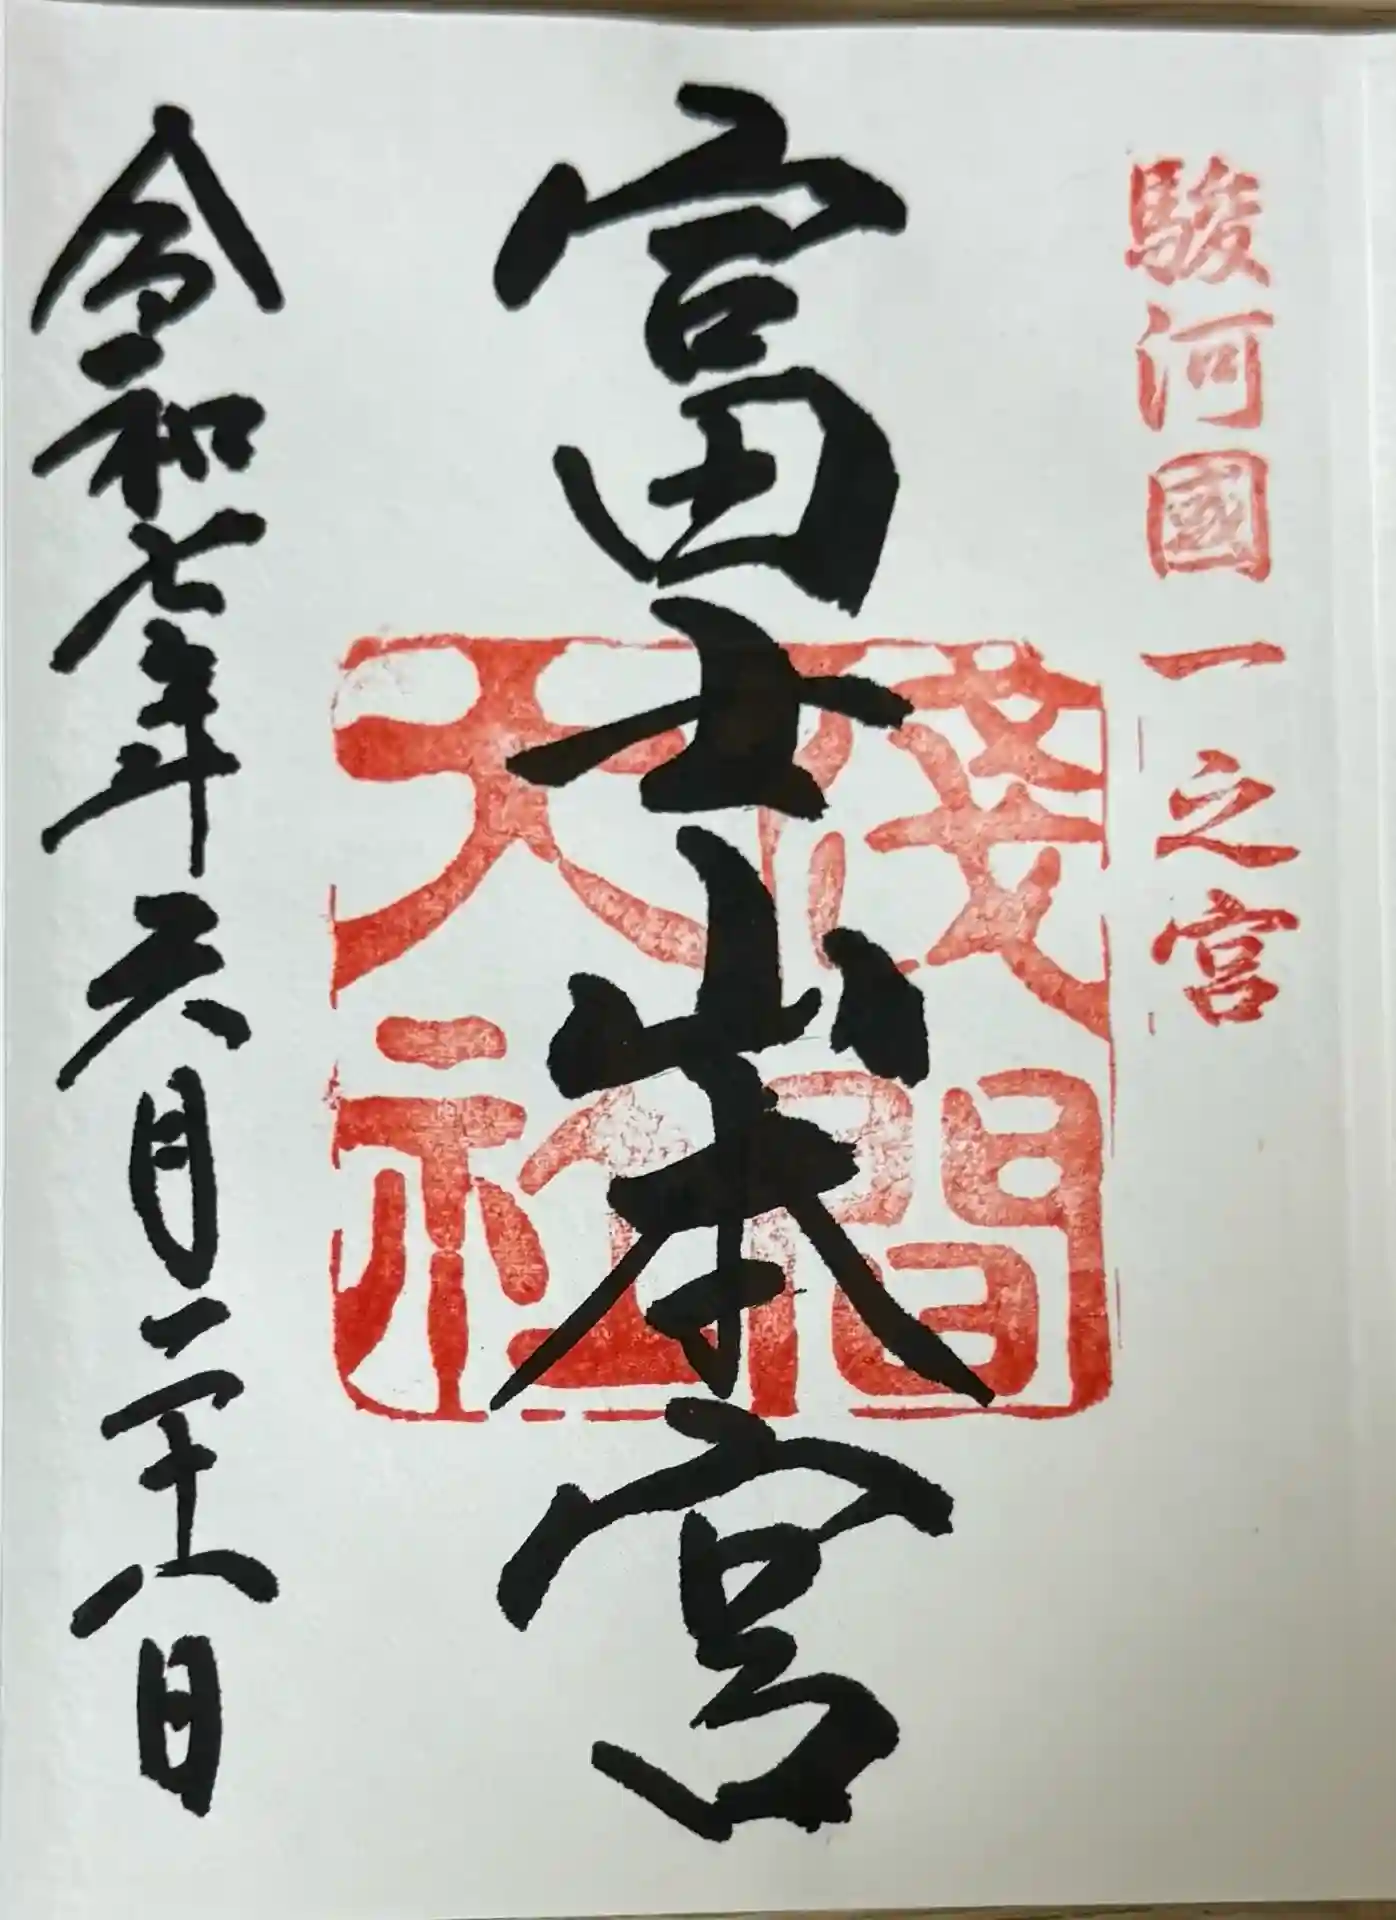 駿河國一之宮
富士山本宮
淺間
大社
令和七年六月二十八日